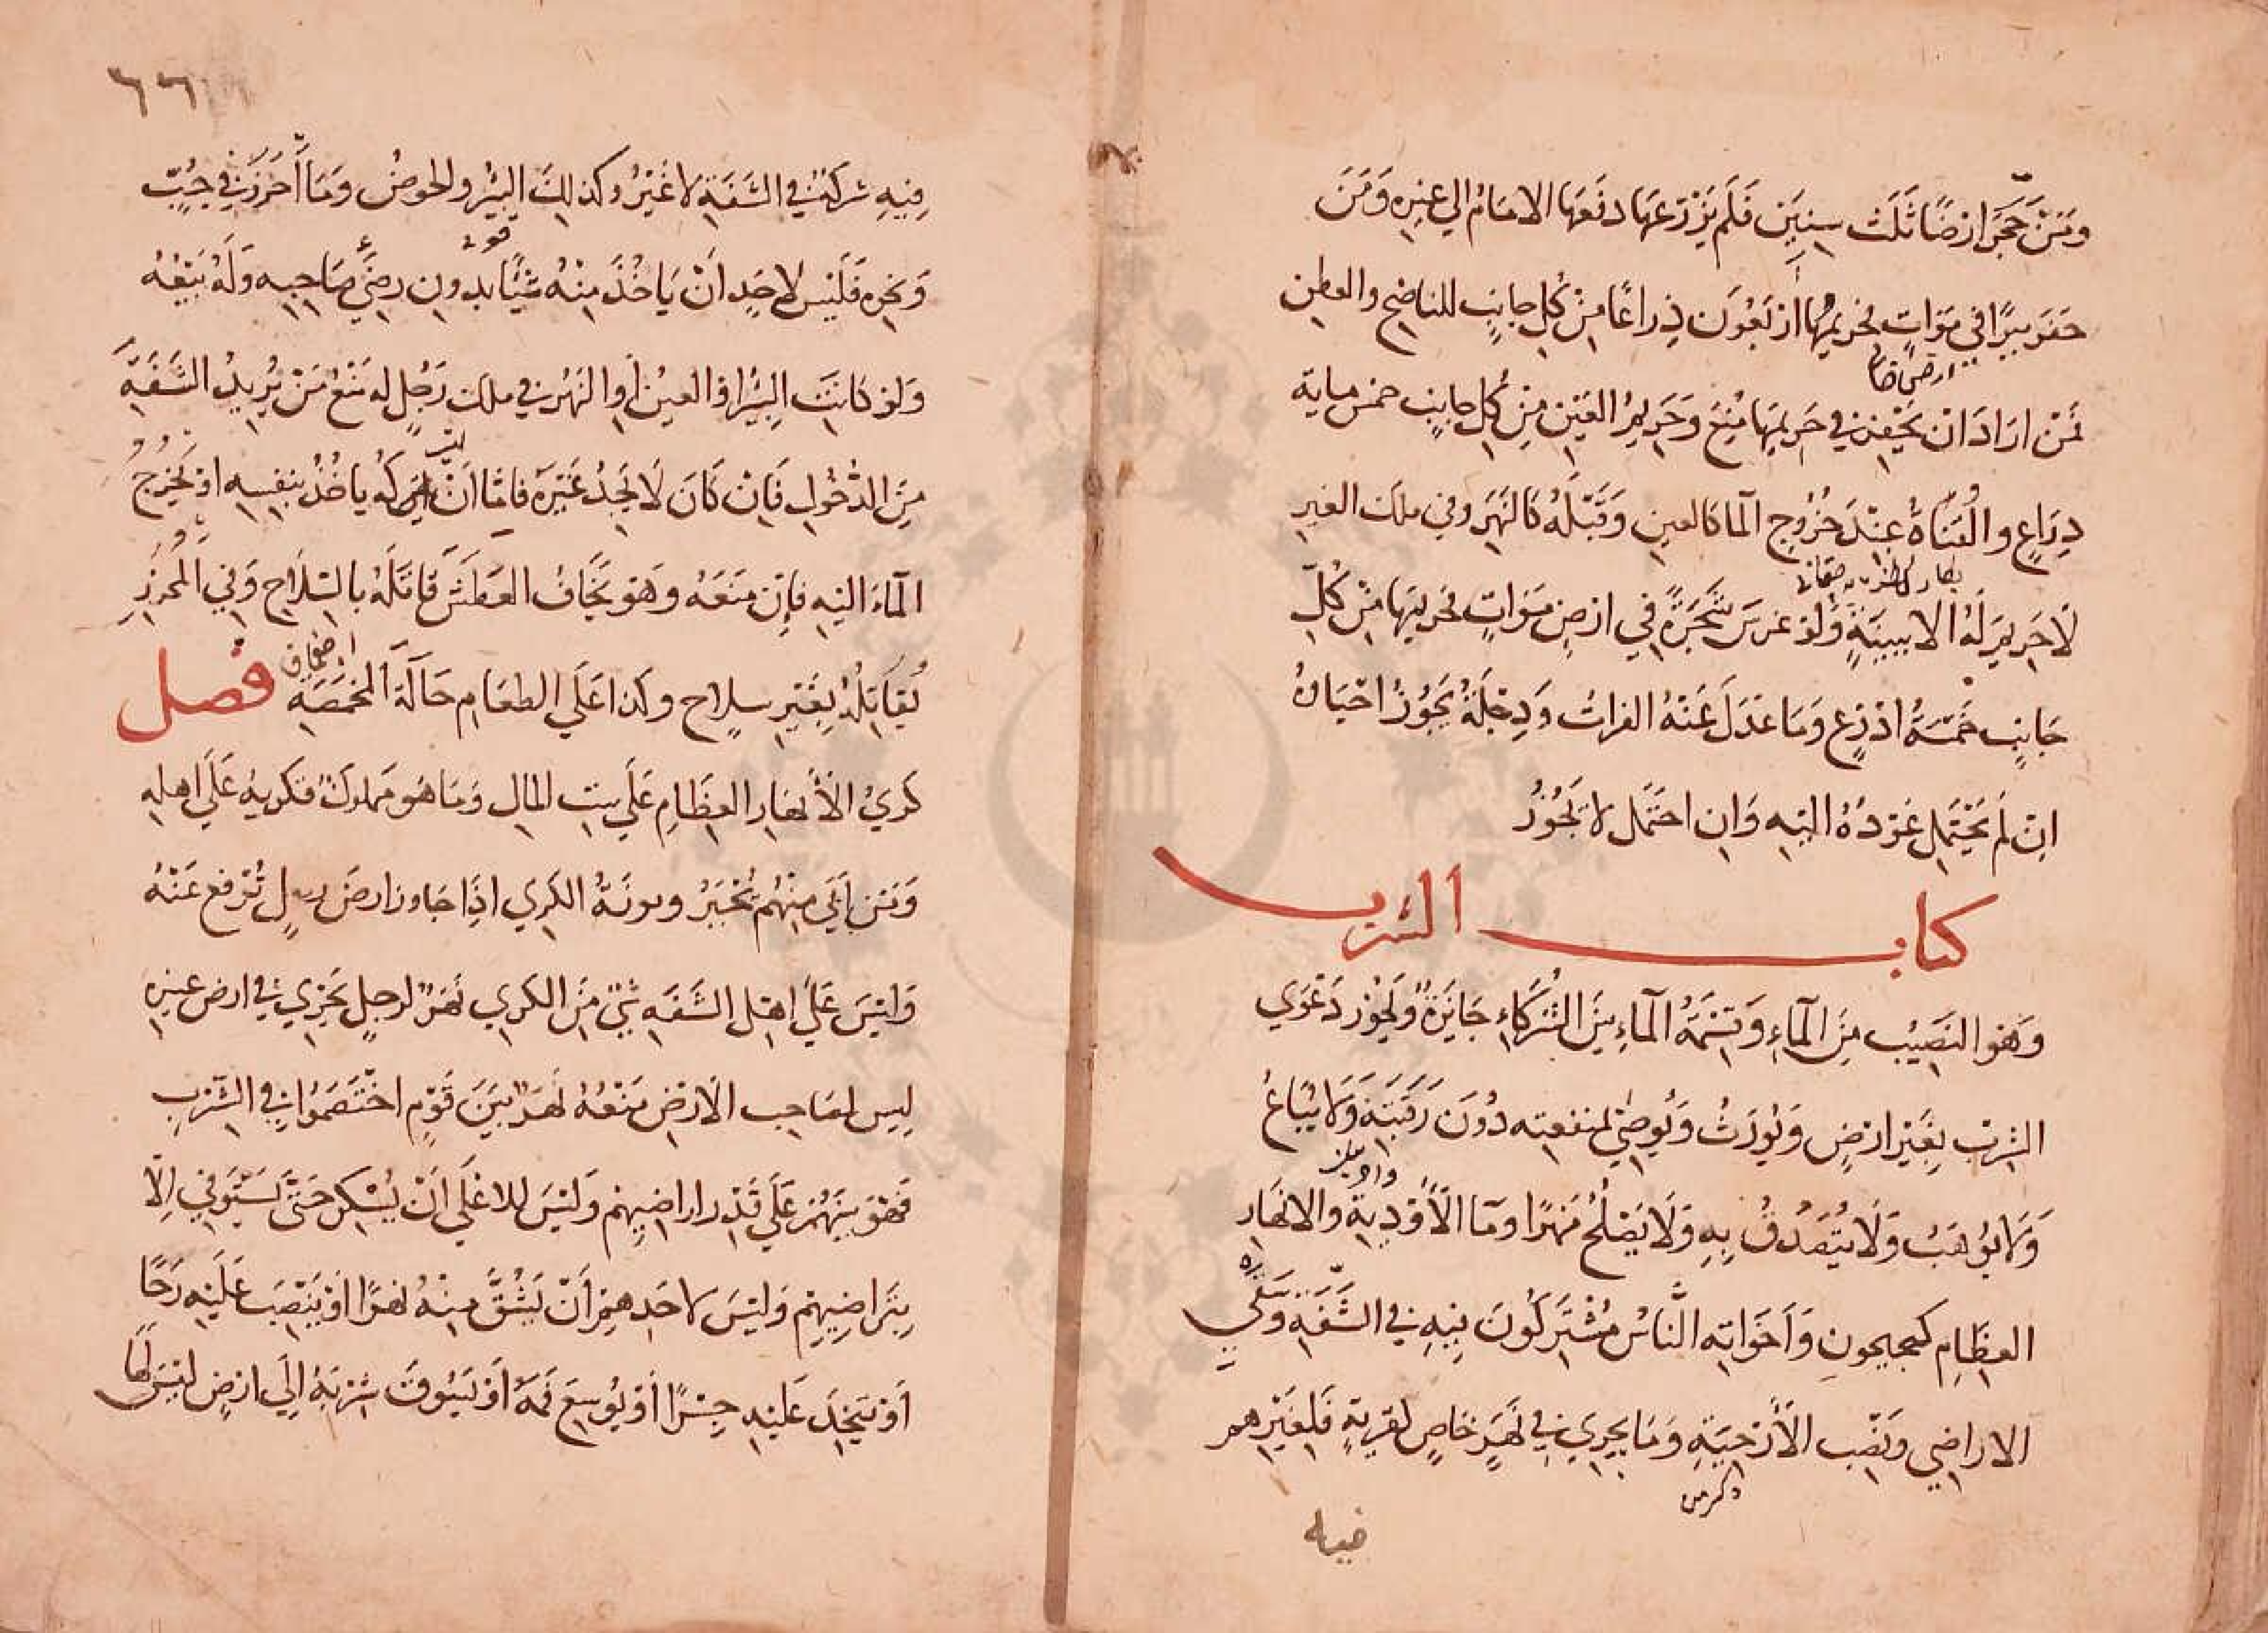 ومن حجر ارضا ثلث سنين فلم يزرعها دفعها الامام الي غيره ومن
حفر بيرا في موات فحريمها اربعون ذراعا من كل جانب للناضح والعطن
فمن اراد ان يحفر في حريمها منع وحريم العين من كل جانب خمس ماية
ذراع والقناة عند خروج الما كالعين وقبله كالنهر وفي ملك الغير
لا حريم له الا ببينة ولو غرس شجرة في ارض موات فحريمها من كل
جانب خمسة اذرع وما عدل عنه الفرات ودجلة يجوز احياه
ان لم يحتمل عوده اليه وان احتمل لا يجوز
كتاب الشرب
وهو النصيب من الماء وقسمة الماء بين الشركاء جايزة ويجوز دعوي
الشرب بغير ارض ويورث ويوصي لمنفعته دون رقبته ولا يباع
ولا يوهب ولا يتصدق به ولا يصلح مهرا وما الاودية والانهار
العظام كجيحون واخواته الناس مشتركون فيه في الشفة وسقي
الاراضي ونصب الارحية وما يجري في نهر خاص لقرية فلغيرهم
فيه
٦٦
فيه شركة في الشفة لا غير وكذلك البير والحوض وما احرز في جب
ونحوه فليس لاحد ان ياخذ منه شيا بدون رضي صاحبه وله بيعه
ولو كانت البير او العين او النهر في ملك رجل له منع من يريد الشفة
من الدخول فان كان لا يجد غيره فاما ان يتركه ياخذ بنفسه او يخرج
الماء اليه فان منعه وهو يخاف العطش قاتله بالسلاح وفي المحرز
يقاتله بغير سلاح وكذا علي الطعام حالة المخمصة فصل
كري الانهار العظام علي بيت المال وما هو مملوك فكريه علي اهله
ومن ابي منهم يجبر ومونة الكري اذا جاوز ارض رجل ترفع عنه
وليس علي اهل الشفة شي من الكري نهر لرجل يجري في ارض غيره
ليس لصاحب الارض منعه نهر بين قوم اختصموا في الشرب
فهو بينهم علي قدر اراضيهم وليس للاعلي ان يسكر حتي يستوفي الا
بتراضيهم وليس لاحدهم ان يشق منه نهرا او ينصب عليه رحا
او يتخذ عليه جسرا او يوسع فمه او يسوق شربه الي ارض ليس لها